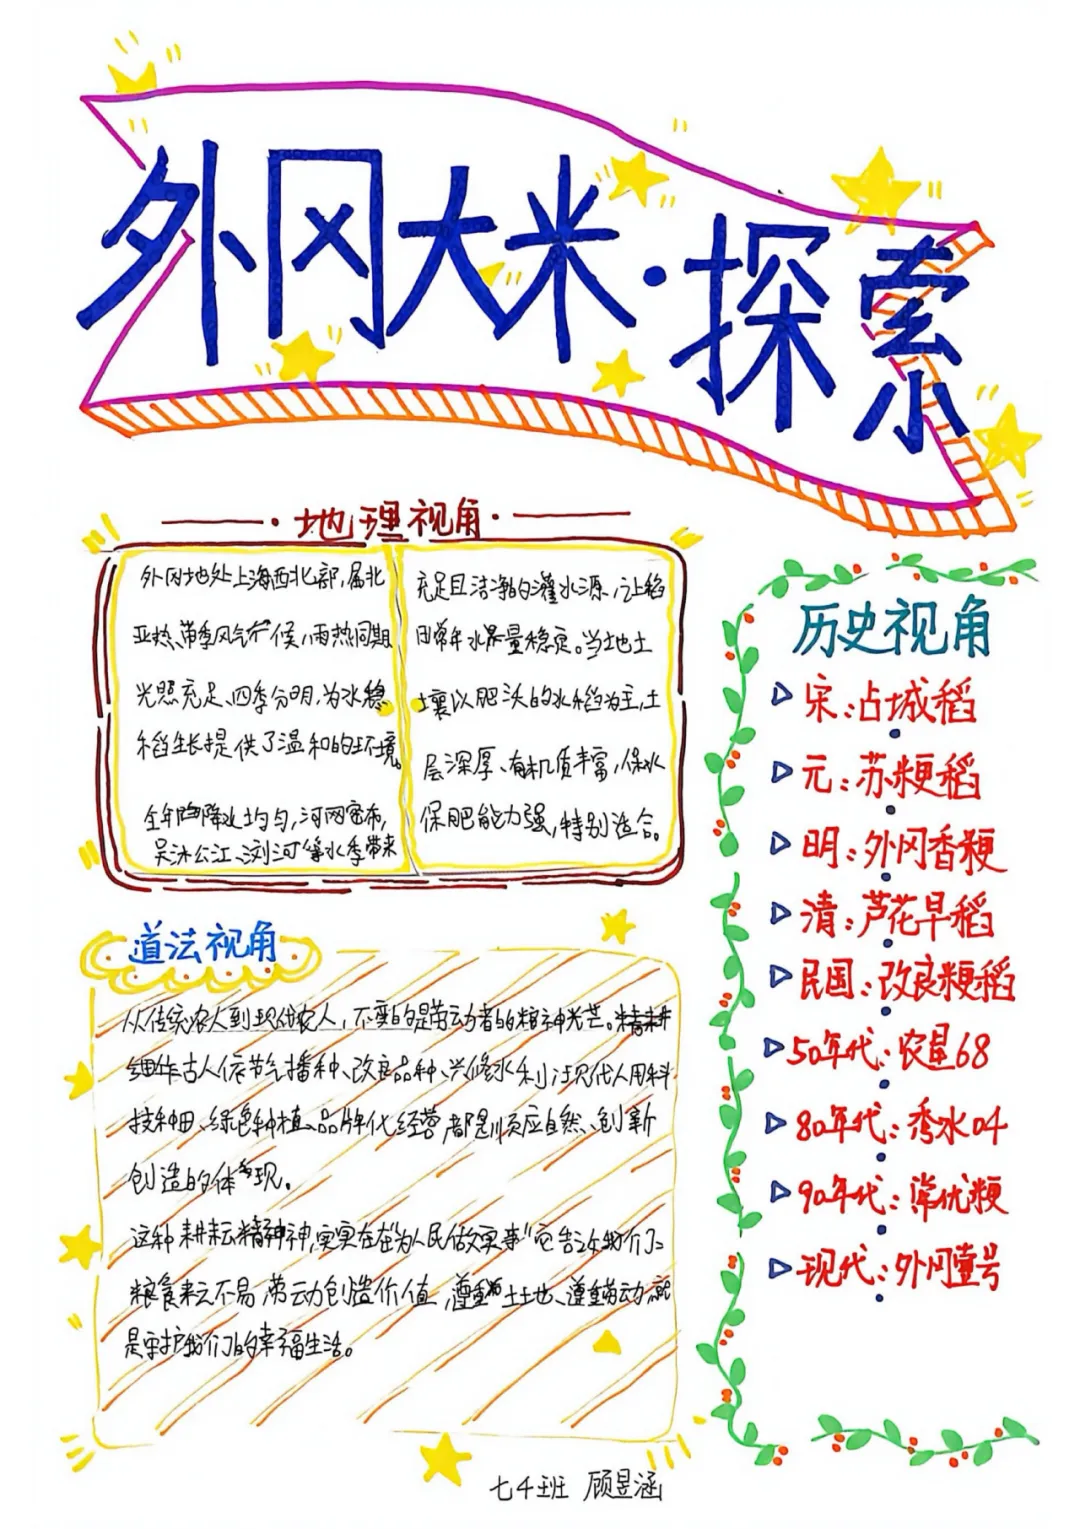 外冈大米·探索
·地理视角·
外冈地处上海西北部，属北
亚热带季风气候，雨热同期
光照充足、四季分明，为水稳
稻生长提供了温和的环境。
全年降降水均匀，河网密布，
吴淞江、浏河等水季带来
充足且洁净的灌水源，让稻
田常年水量稳定。当地土
壤以肥沃的水稻为主，土
层深厚、有机质丰富，保水
保肥能力强，特别适合。
历史视角
宋：占城稻
元：苏粳稻
明：外冈香粳
清：芦花早稻
民国：改良粳稻
50年代：农垦68
80年代：秀水04
90年代：常优粳
现代：外冈壹号
道法视角
从传统农人到现代农人，不变的是劳动者的精神光芒。精耕
细作古人依节气播种、改良品种、兴修水利；现代人用科
技种田、绿色种植、品牌化经营都是顺应自然、创新
创造的体现。
这种耕耘精神，实实在在"为人民做实事"它告诉我们了
粮食来之不易 劳动创造价值，遵重土地、遵重劳动就
是守护我们的幸福生活。
七4班 顾昱涵